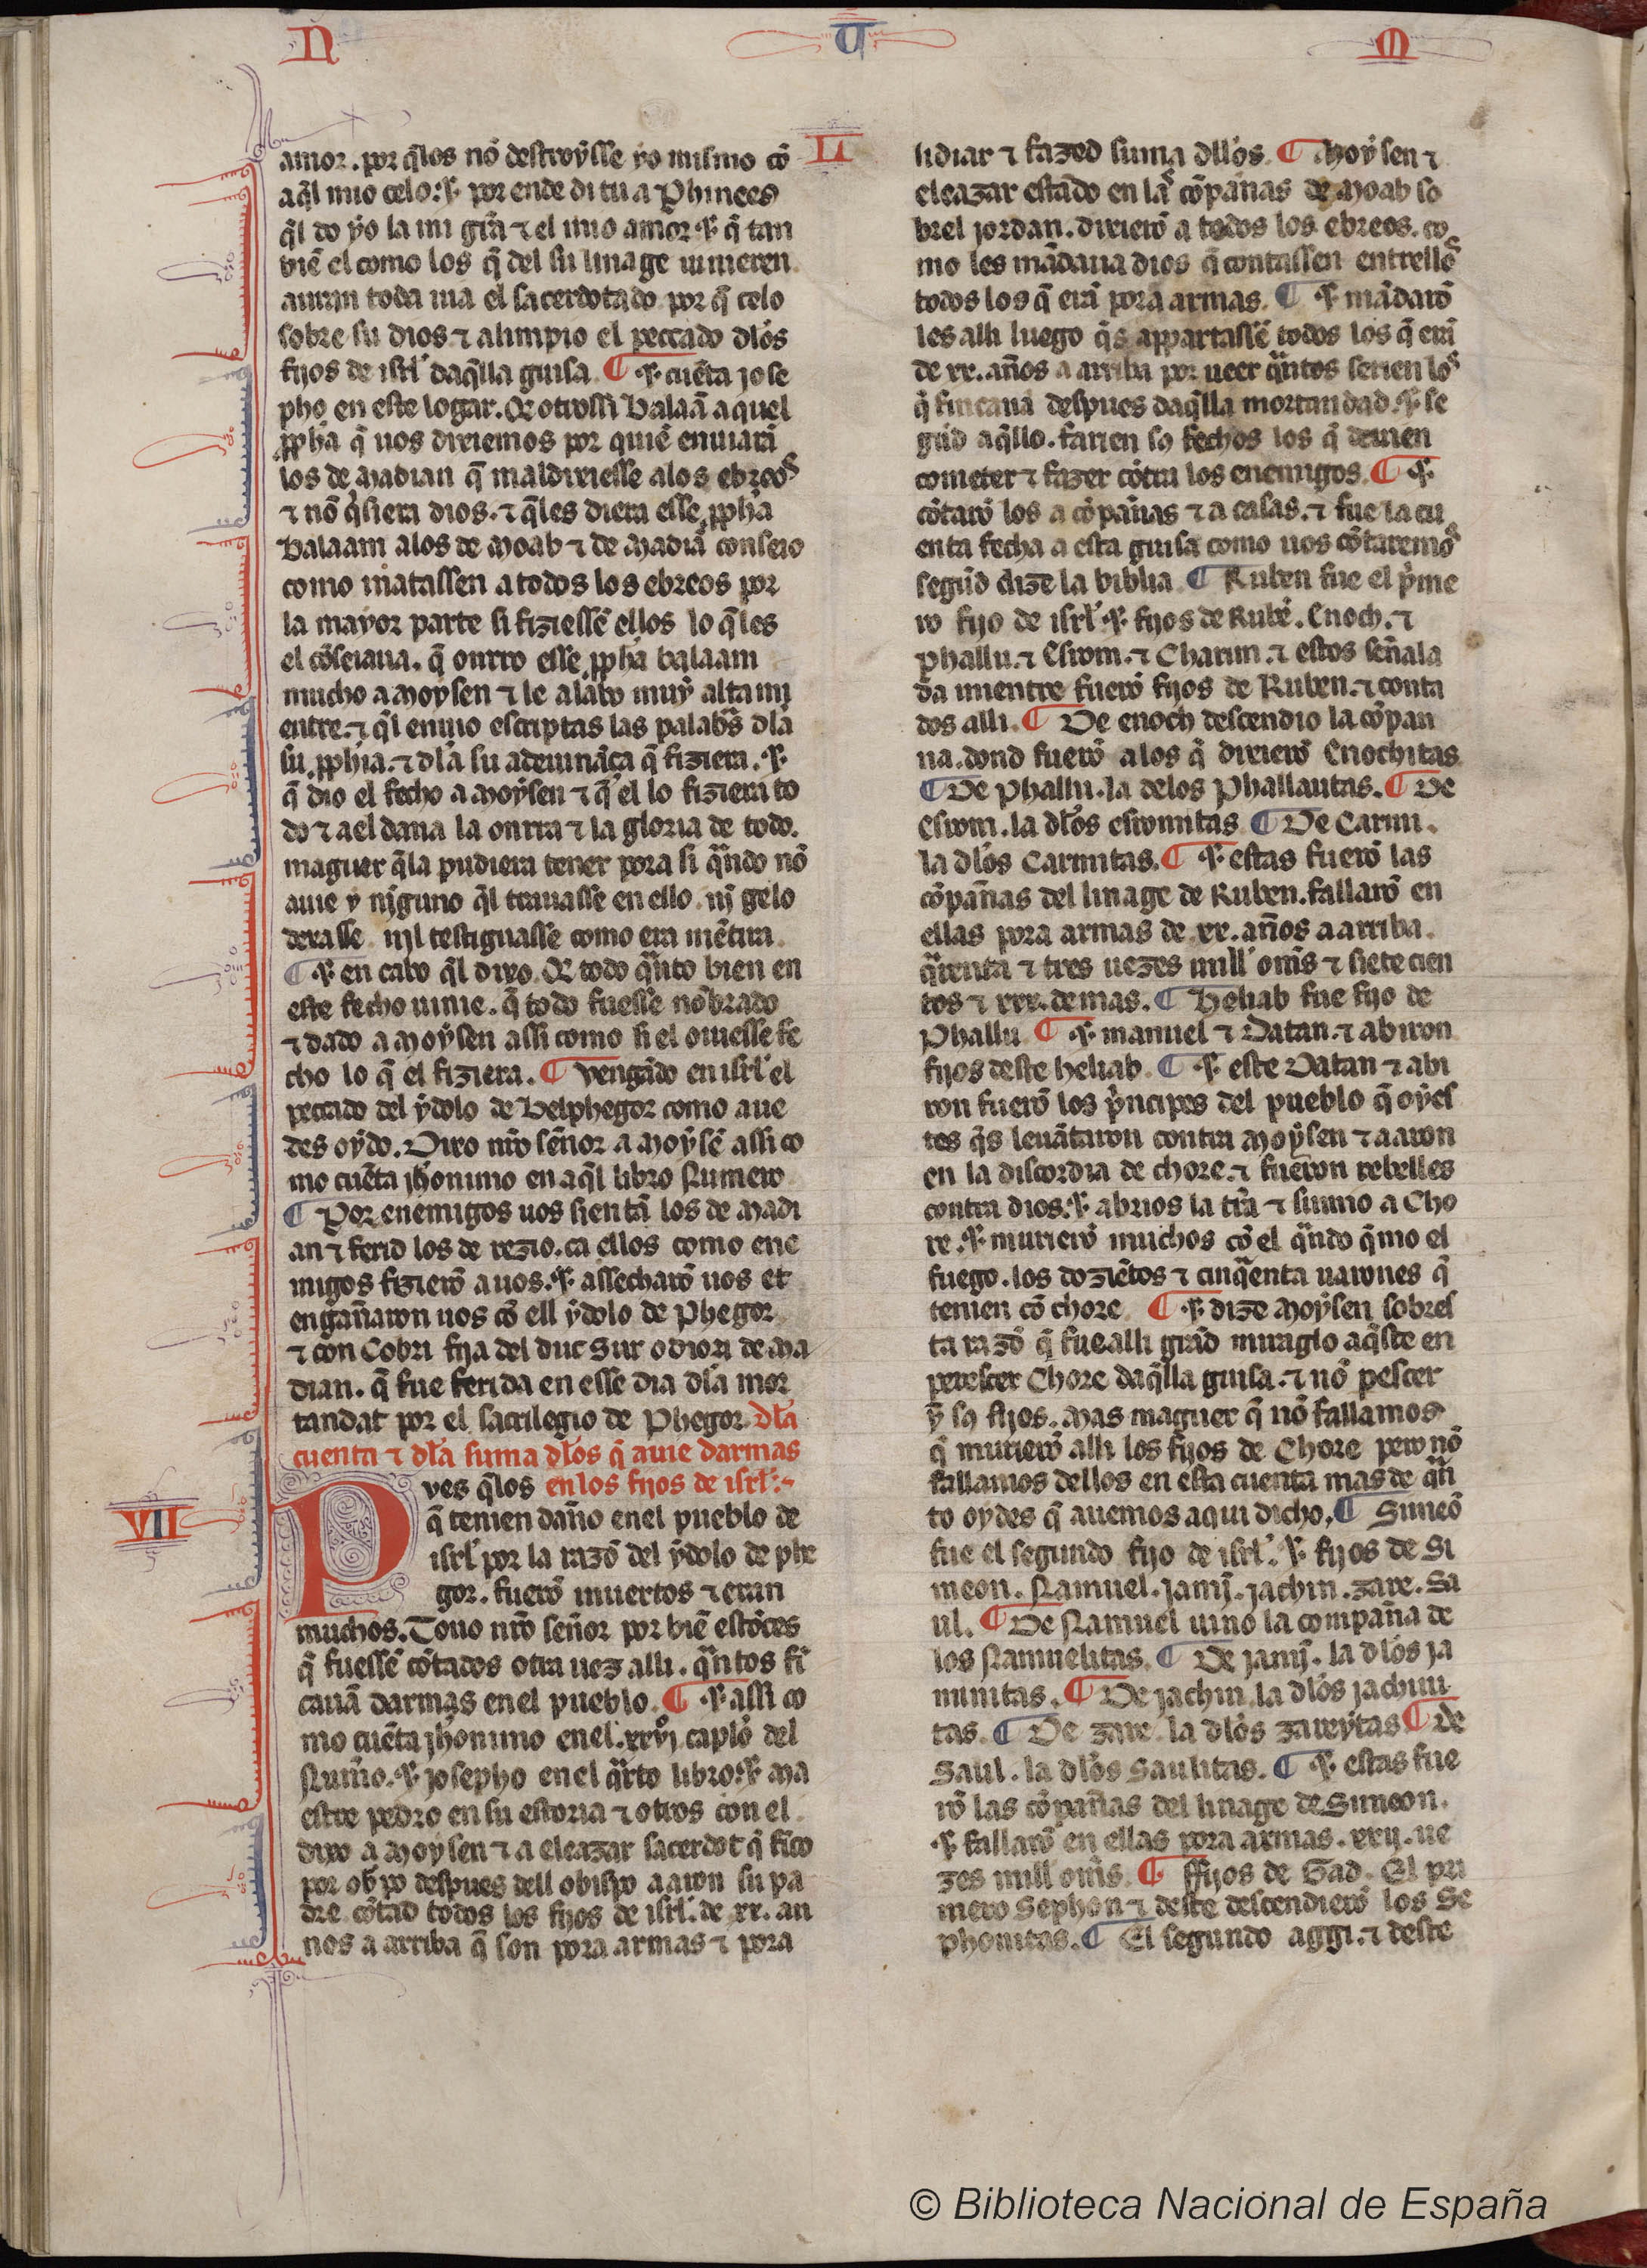 N U M
LI
amor. por q̃los nõ destroẏsse yo mismo cõ
aq̃l mio celo. ⁊ por ende di tu a Phinees
q̃l do ẏo la mi gr̃a ⁊ el mio amor. ⁊ q̃ tan
biẽ el como los q̃ del su linage uinieren.
auran toda uia el sacerdotado. por q̃ celo
sobre su dios. ⁊ alimpio el peccado dl̃os
fijos de isrl̃ daq̃lla guisa. ¶ ⁊ cuẽta jose
pho en este logar. Q̃ otrossi balaã aquel
ꝓpha q̃ uos dixiemos por quiẽ enuiarã
los de Madian q̃ maldixiesse alos ebreos
⁊ nõ q̃siera dios. ⁊ q̃les diera esse ꝓpha
balaam alos de Moab ⁊ de Madiã conseio
como matassen a todos los ebreos por
la mayor parte si fiziessẽ ellos lo q̃les
el cõseiaua. q̃ onrro esse ꝓpha balaam
mucho a Moysen ⁊ le alabo muẏ alta mi
entre. ⁊ q̃l enuio escriptas las palabr̃s dl̃a
su ꝓphia. ⁊ dl̃a su adeuinãça q̃ fiziera. ⁊
q̃ dio el fecho a Moẏsen ⁊ q̃ el lo fiziera to
do ⁊ a el daua la onrra ⁊ la gloria de todo.
maguer q̃la pudiera tener pora si q̃ndo nõ
auie y nĩguno q̃l trauasse en ello. nj̃ gelo
dexasse. njl testiguasse como era mẽtira.
¶ ⁊ en cabo q̃l dixo. Q̃ todo q̃nto bien en
este fecho uinie. q̃ todo fuesse nõbrado
⁊ dado a Moẏsen assi como si el ouiesse fe
cho lo q̃ el fiziera. ¶ Vengãdo en isrl̃ el
peccado del ẏdolo de belphegor como aue
des oẏdo. Dixo nr̃o señor a Moẏsẽ assi co
mo cuẽta jh̃onimo en aq̃l libro Numero.
¶ Por enemigos uos sientã los de Madi
an ⁊ ferid los de rezio. ca ellos como ene
migos fizierõ a uos. ⁊ assecharõ uos et
engañaron uos cõ ell ẏdolo de Phegor
⁊ con Cobri fija del duc Sur o dioʒi de Ma
dian. q̃ fue ferida en esse dia dl̃a mor
tandat por el sacrilegio de Phegor. dl̃a
cuenta ⁊ dl̃a suma dl̃os q̃ auie darmas
en los fijos de isrl̃.
VII
Pves q̃los
q̃ tenien daño enel pueblo de
isrl̃ por la razõ del ẏdolo de phe
gor. fuerõ muertos ⁊ eran
muchos. Touo nr̃o señor por biẽ estõces
q̃ fuessẽ cõtados otra uez alli. q̃ntos fĩ
cauã darmas enel pueblo. ¶ ⁊ assi co
mo cuẽta jh̃onimo enel. xxvj. capl̃o del
Num̃o. ⁊ josepho enel q̃rto libro. ⁊ Ma
estre pedro en su estoria ⁊ otros con el.
dixo a Moysen ⁊ a eleazar sacerdot q̃ fĩco
por ob̃po despues dell obispo aaron su pa
dre. cõtad todos los fijos de isrl̃. de. xx. an
nos a arriba q̃ son pora armas ⁊ pora
lidiar ⁊ fazed suma dllos. ¶ Moẏsen ⁊
eleazar estãdo en las cõpañas de Moab so
brel jordan. dixierõ a todos los ebreos. co
mo les mãdaua dios q̃ contassen entrellos
todos los q̃ erã pora armas. ¶ ⁊ mãdarõ
les alli luego q̃s appartassẽ todos los q̃ erã
de. xx. años a arriba por ueer q̃ntos serien los
q̃ fincauã despues daq̃lla mortandad. ⁊ se
gũd aq̃llo. farien sꝯ fechos los q̃ deuien
cometer ⁊ fazer cõtra los enemigos. ¶ ⁊
cõtarõ los a cõpañas ⁊ a casas. ⁊ fue la cu
enta fecha a esta guisa como uos cõtaremos
segũd dize la biblia. ¶ Ruben fue el p̃me
ro fijo de isrl̃. ⁊ fijos de Rubẽ. Enoch. ⁊
Phallu. ⁊ Esrom. ⁊ Charmi. ⁊ estos señala
da mientre fuerõ fijos de Ruben. ⁊ conta
dos alli. ¶ De enoch descendio la cõpan
na. dond fuerõ alos q̃ dixierõ Enochitas
¶ De phallu. la delos Phalluitas. ¶ De
Esrom. la dl̃os esromitas ¶ De Carmi.
la dl̃os Carmitas. ¶ ⁊ estas fuerõ las
cõpañas del linage de Ruben. fallarõ en
ellas pora armas de. xx. años a arriba.
q̃renta ⁊ tres uezes mill om̃s ⁊ siete cien
tos ⁊ xxx. demas. ¶ Heliab fue fijo de
Phallu ¶ ⁊ manuel ⁊ Datan. ⁊ abiron
fijos deste heliab. ¶ ⁊ este Datan ⁊ abi
ron fuerõ los p̃ncipes del pueblo q̃ oẏes
tes q̃s leuãtaron contra Moẏsen ⁊ aaron
en la discordia de chore. ⁊ fueron rebelles
contra dios. ⁊ abrios la tr̃a ⁊ sumio a Cho
re. ⁊ murierõ muchos cõ el q̃ndo q̃mo el
fuego. los dozиẽtos ⁊ cinq̃enta uarones q̃
tenien cõ chore ¶ ⁊ dize Moẏsen sobres
ta razõ q̃ fue alli grãd miraglo aq̃ste en
perescer Chore daq̃lla guisa. ⁊ nõ pescer
ẏ sꝯ fijos. Mas maguer q̃ nõ fallamos
q̃ murierõ alli los fijos de Chore pero nõ
fallamos dellos en esta cuenta mas de q̃n
to oydes q̃ auemos aqui dicho. ¶ Simeõ
fue el segundo fijo de isrl̃. ⁊ fijos de Si
meon. Namuel. jamĩ. jachin. zare. Sa
ul. ¶ De Namuel uino la compaña de
los Namuelitas. ¶ De jamĩ. la dl̃os ja
minitas. ¶ De jachin. la dl̃os jachini
tas. ¶ De zare. la dl̃os zareẏtas ¶ De
Saul. la dl̃os Saulitas. ¶ ⁊ estas fue
rõ las cõpañas del linage de Simeon.
⁊ fallarõ en ellas pora armas. xxij. ue
zes mill om̃s. ¶ ffijos de Gad. El pri
mero Sephon ⁊ deste descendierõ los Se
phonitas. ¶ El segundo aggi. ⁊ deste
© Biblioteca Nacional de España